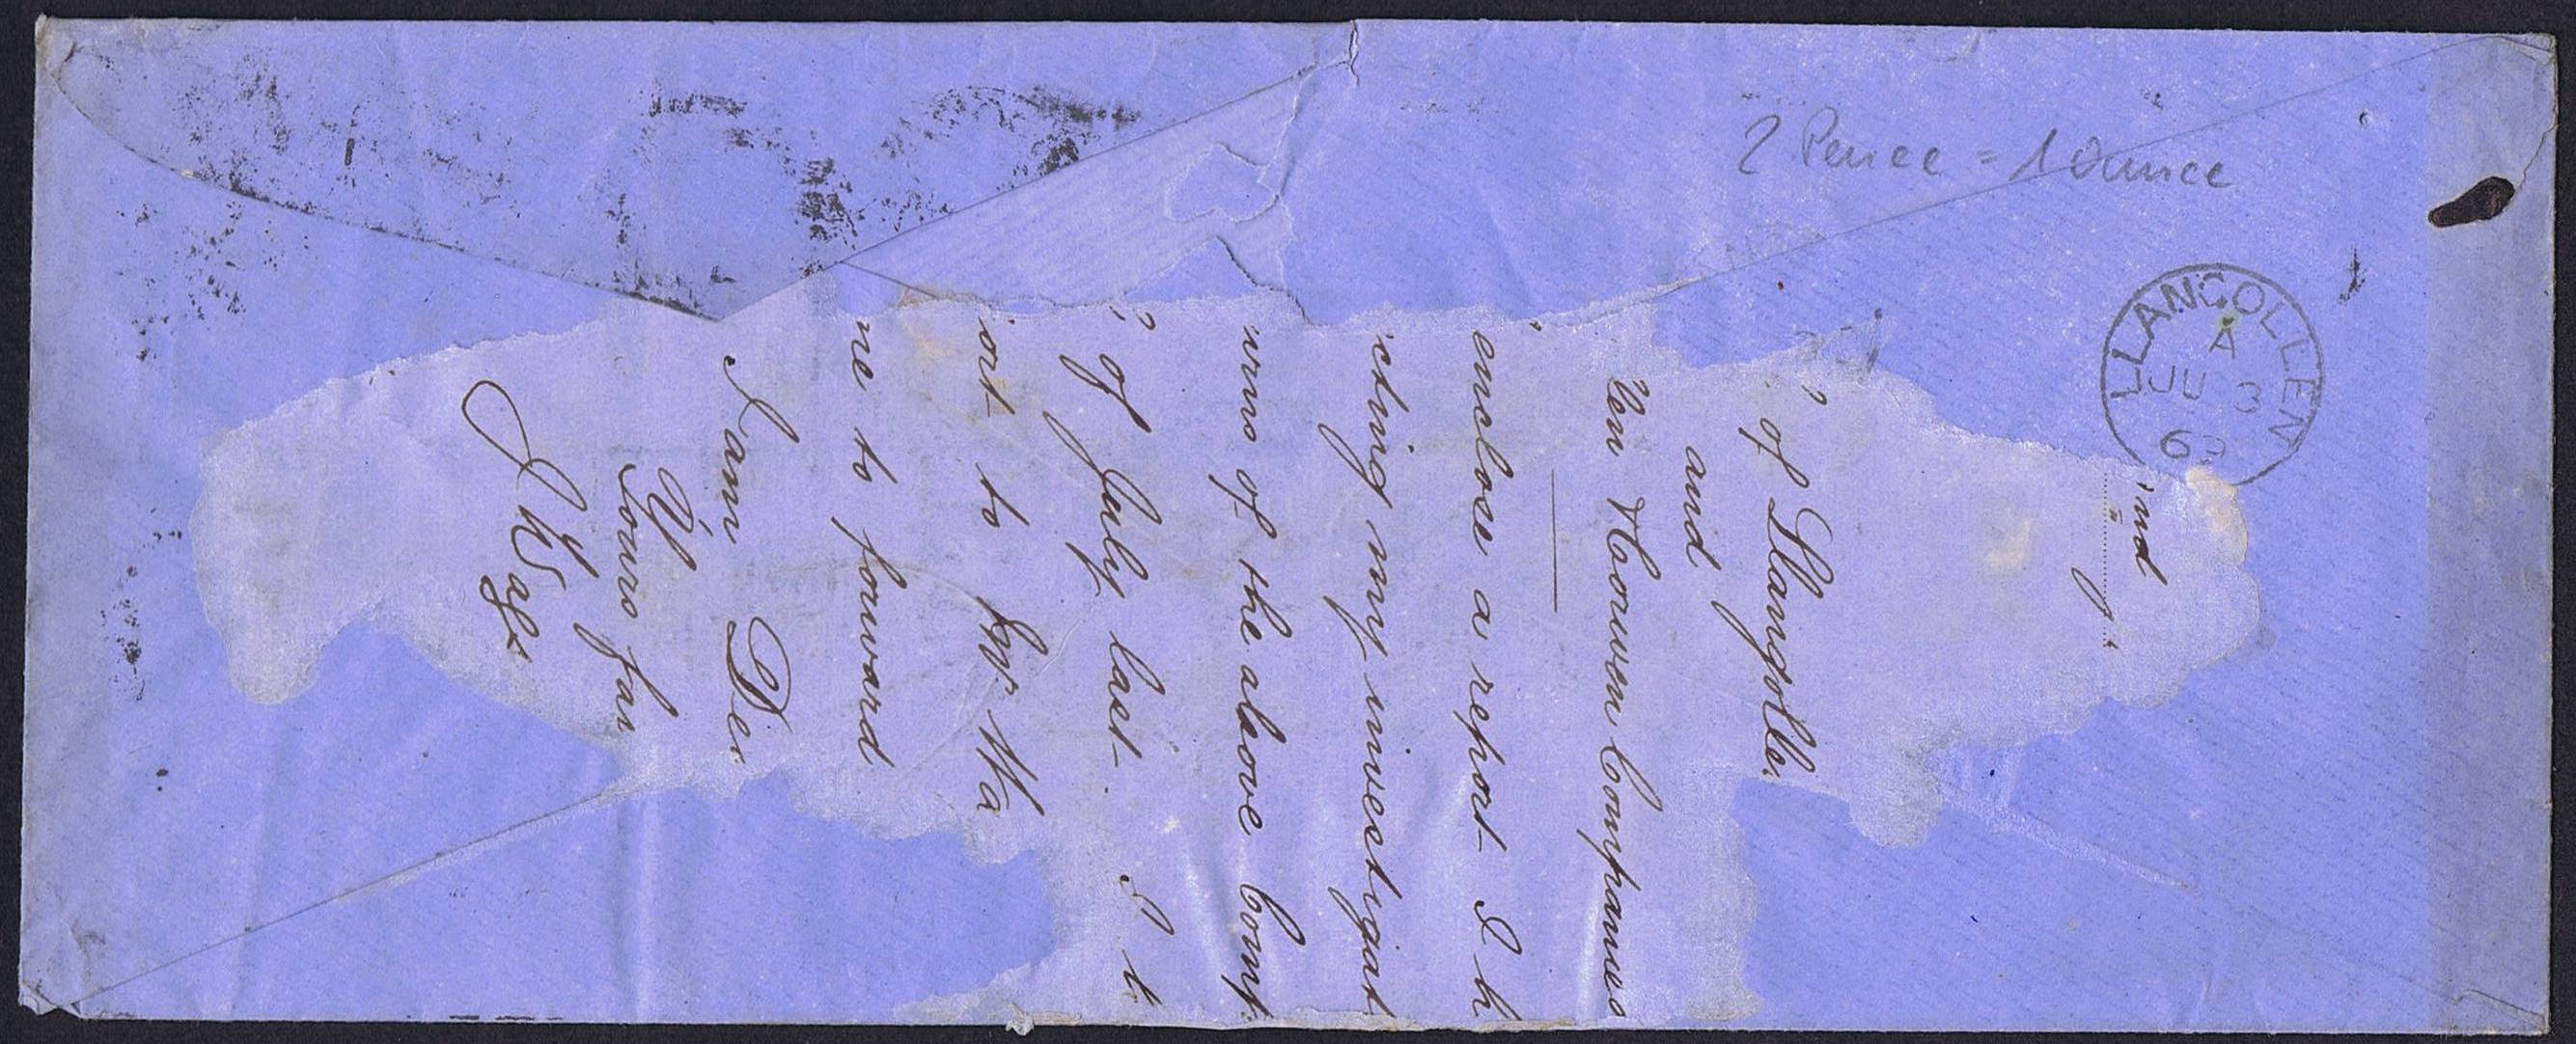 2 Pence = 1 Ounce
LLANGOLLEN
A
JU 3
6
of Llangolle
and
len & Corwen Companies
enclose a report I h
cting my investigat
of the above Comp
of July last. I t
ort to Mr Wa
ne to forward
I am Dea
Yours fai